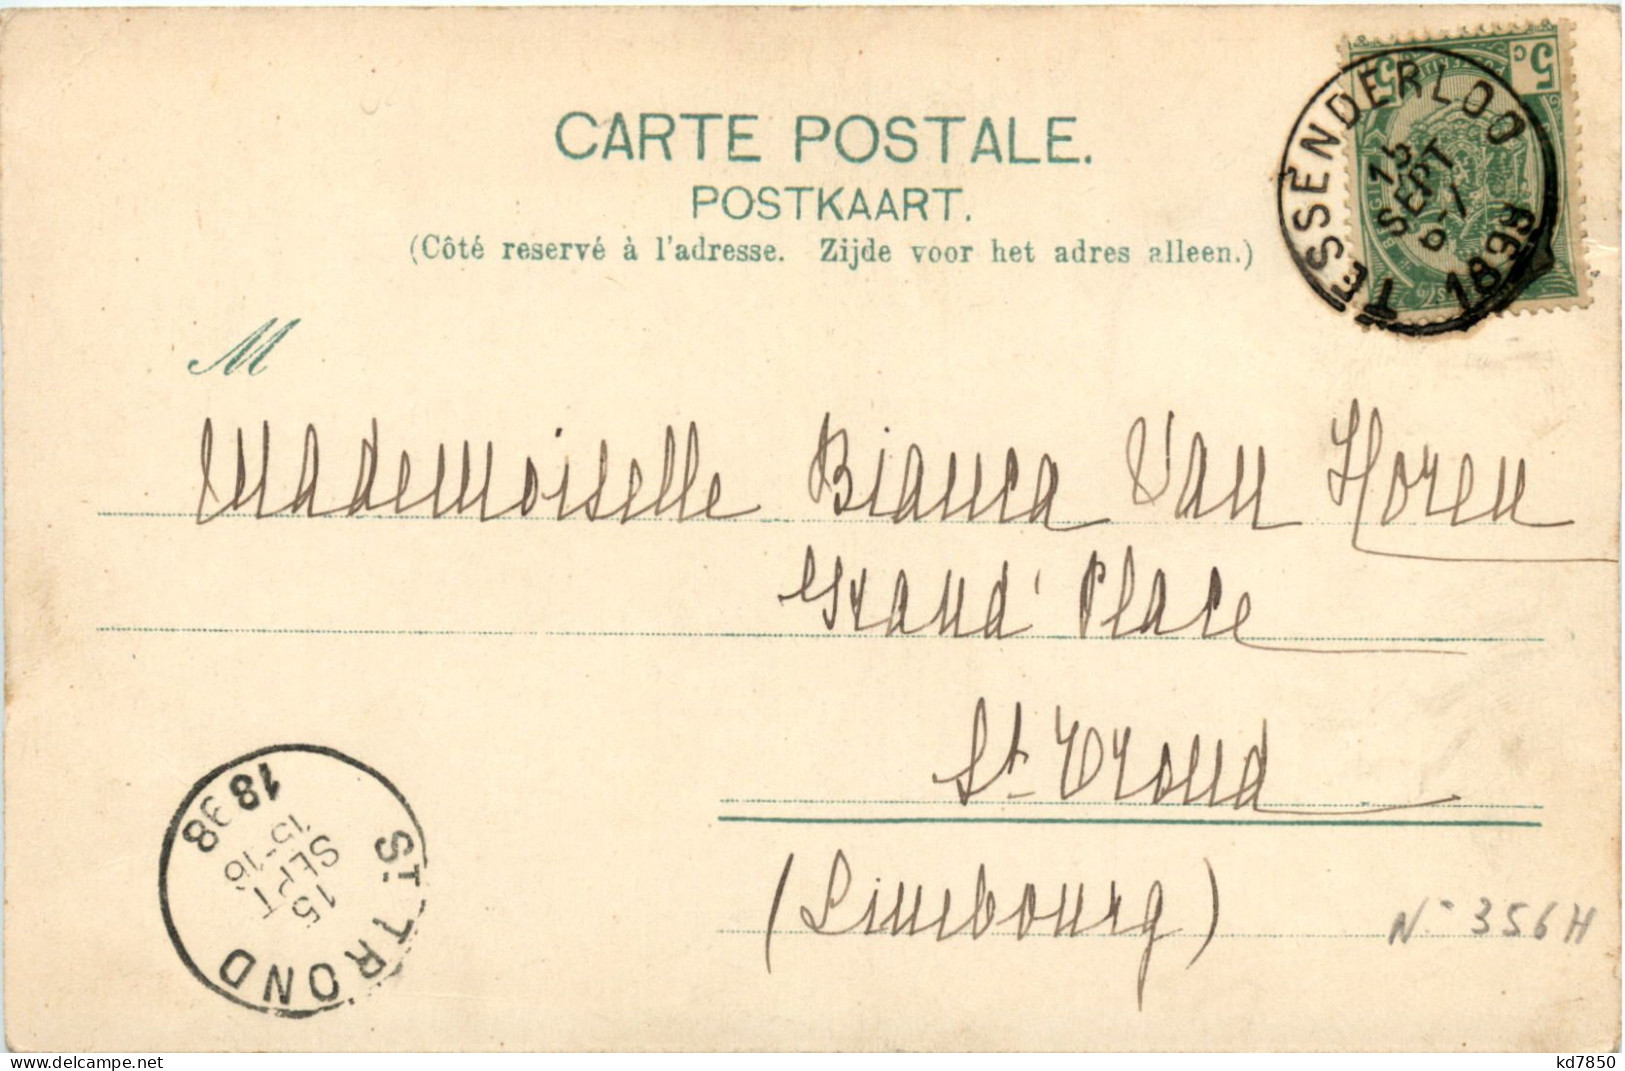 CARTE POSTALE.
POSTKAART.
(Côté reservé à l'adresse. Zijde voor het adres alleen.)
TESSENDERLOO
15
SEPT
1898
5c 5
M
Mademoiselle Bianca Van Horen
Grand' Place
St. Trond
(Limbourg)
ST. TROND
15
SEPT
15-16
1898
N- 356H
www.delcampe.net
kd7850